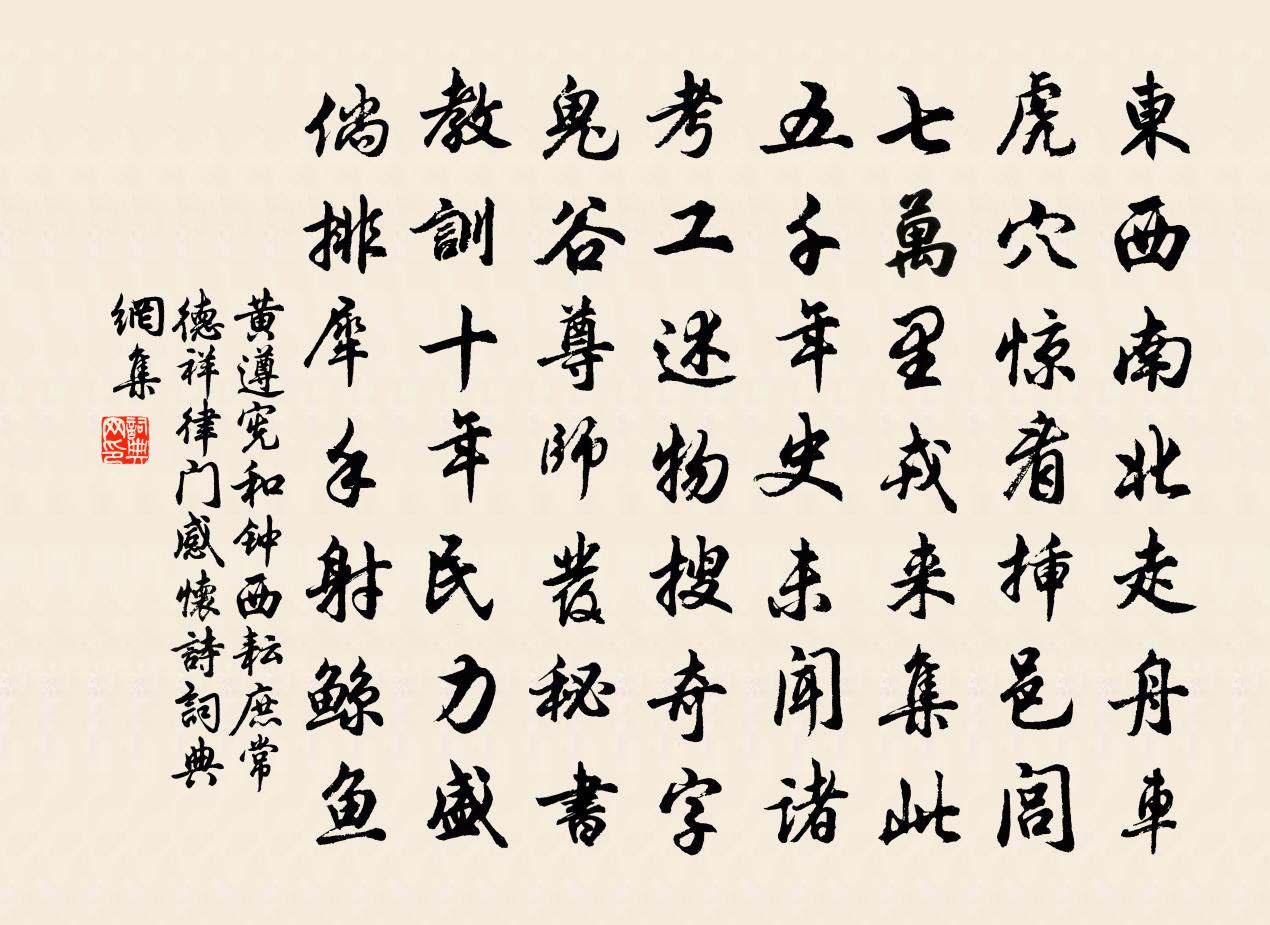 東西南北走舟車
虎穴惊看挿邑闾
七萬里戎来集此
五千年史未闻诸
考工述物搜奇字
鬼谷尊师發秘書
教訓十年民力盛
倘排犀手射鲸鱼
黄遵宪和钟西耘庶常
德祥律门感懷詩詞典
網集
詞典
网印